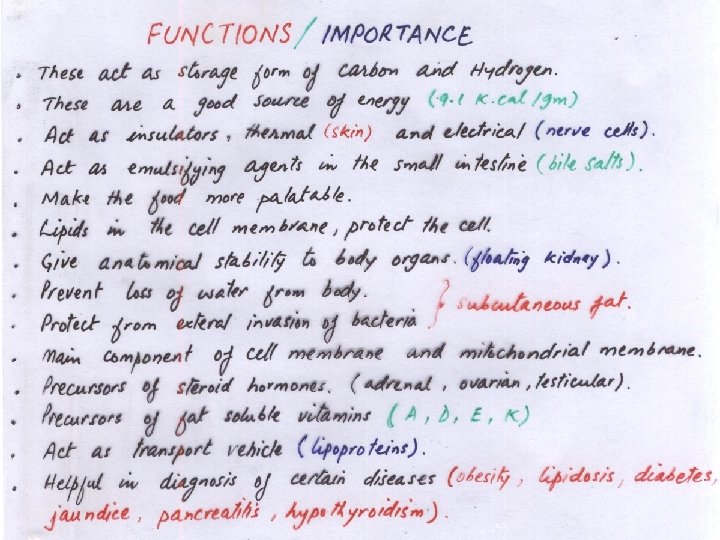 FUNCTIONS / IMPORTANCE
. These act as storage form of carbon and Hydrogen.
. These are a good source of energy (9.1 K.cal/gm)
. Act as insulators, thermal (skin) and electrical (nerve cells).
. Act as emulsifying agents in the small intestine (bile salts).
. Make the food more palatable.
. Lipids in the cell membrane, protect the cell.
. Give anatomical stability to body organs. (floating kidney).
. Prevent loss of water from body.
. Protect from exteral invasion of bacteria } subcutaneous fat.
. Main component of cell membrane and mitochondrial membrane.
. Precursors of steroid hormones. (adrenal, ovarian, testicular).
. Precursors of fat soluble vitamins (A, D, E, K)
. Act as transport vehicle (lipoproteins).
. Helpful in diagnosis of certain diseases (obesity, lipidosis, diabetes,
jaundice, pancreatitis, hypothyroidism).